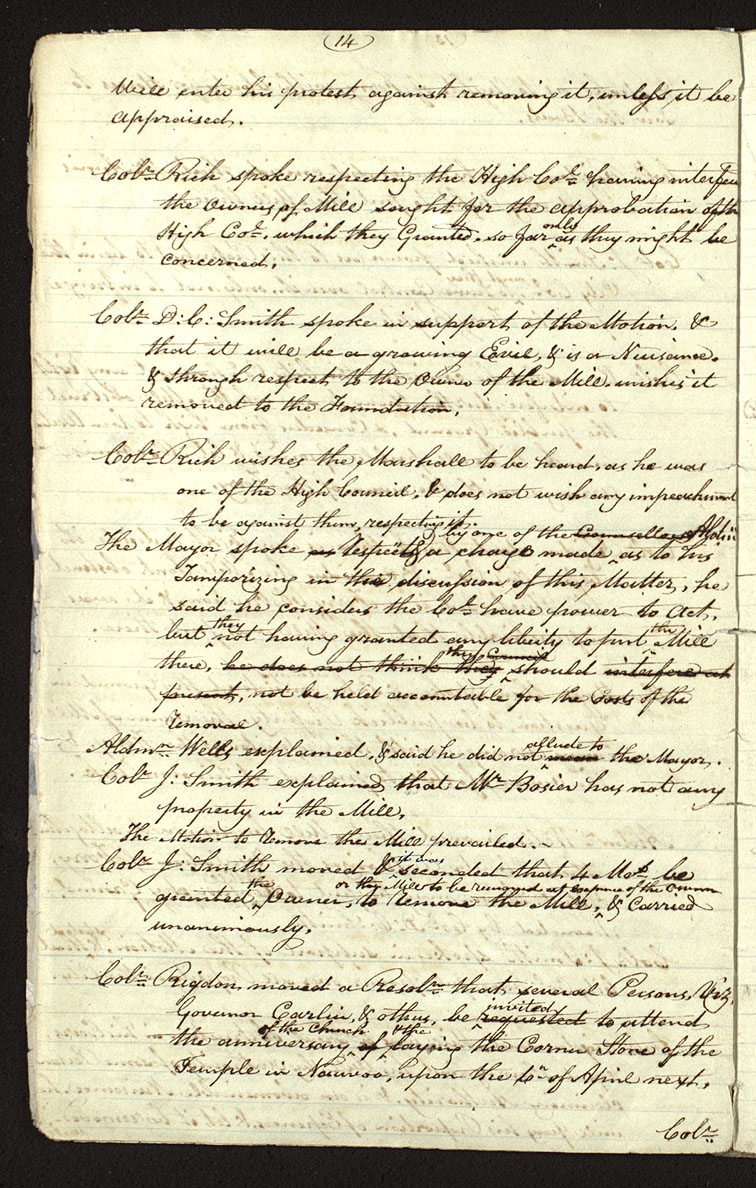 14
Will enter his protest against removing it, unless it be
appraised.
Colr. Rich spoke respecting the High Col. having interfer
the Owners of Mill sought for the approbation of the
High Col. which they Granted, so far only as they might be
concerned.
Colr. D: C: Smith spoke in support of the Motion, &
that it will be a growing Evil, & is a Neusance.
& through respect to the Owner of the Mill, wishes it
removed to the Foundation.
Colr. Rich wishes the Marshall to be heard, as he was
one of the High Council, & does not wish any impeachment
to be against them, respecting it.
The Mayor spoke as respectg a charge made by one of the Counsellors Aldn. as to his
Temporizing in this discussion of this Matter, he
said he considers the Col. have power to Act,
but they not having granted any liberty to put the Mill
there, he does not think they the Council should interfere at
present, not be held accountable for the Costs of the
removal.
Aldmn. Wells explained, & said he did not mean allude to the Mayor.
Colr. J: Smith explained that Mr. Bosier has not any
property in the Mill.
The Motion to remove the Mill prevailed.
Colr. J: Smith moved & it was seconded that 4 Mos. be
granted the Owner, to remove the Mill, or the Mill to be removed at expence of the Owner & Carried
unanimously.
Colr. Rigdon, moved a Resoln. that several Persons, Viz.
Governor Carlin, & others, be requested invited to attend
the anniversary of the Church of & the laying the Corner Stone of the
Temple in Nauvoo, upon the 6th. of April next.
Colr.